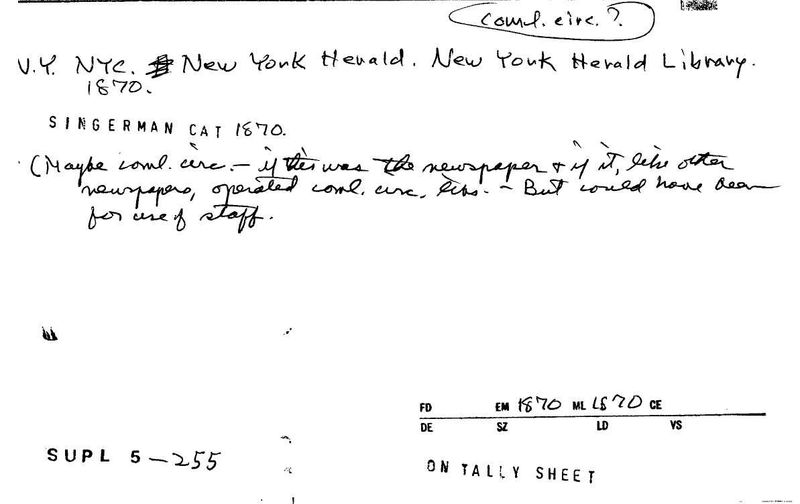 coml. circ. ?
N.Y. NYC. New York Herald. New York Herald Library.
1870.
SINGERMAN CAT 1870.
(Maybe coml. circ. – if this was the newspaper & if it, like other
newspapers, operated coml. circ. libs. – But could have been
for use of staff.
FD EM 1870 ML 1870 CE
DE SZ LD VS
SUPL 5-255
ON TALLY SHEET